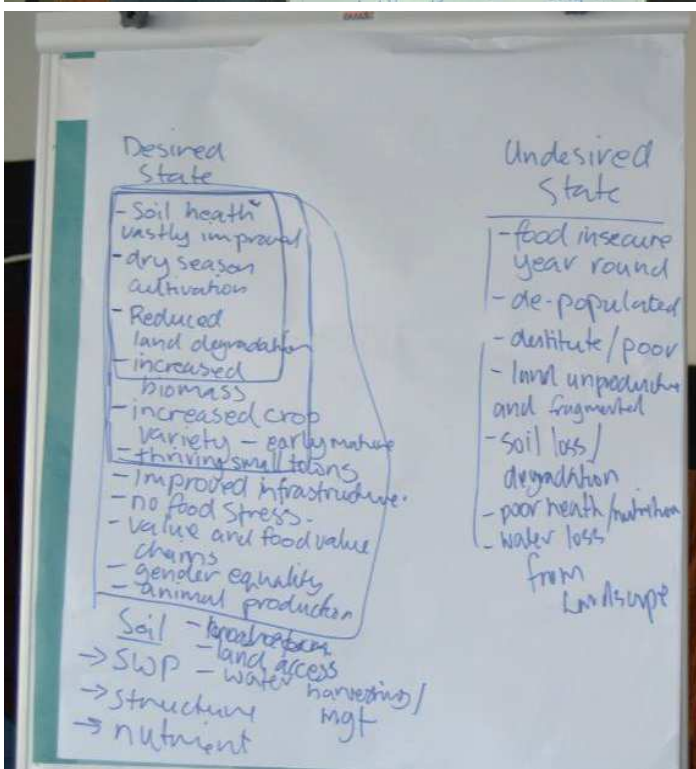 Desired
State
- Soil heath
vastly improved
- dry season
cultivation
- Reduced
land degradation
- increased
biomass
- increased crop
variety - early mature
- thriving small towns
- improved infrastructure.
- no food stress.
- value and food value
chains
- gender equality
- animal production
Soil -
- land access
→ SWP - water harvesting/
→ structure mgt
→ nutrient
Undesired
State
- food insecure
year round
- de-populated
- destitute/poor
- land unproductive
and fragmented
- soil loss/
degradation
- poor heath/nutrition
- water loss
from
Landscape